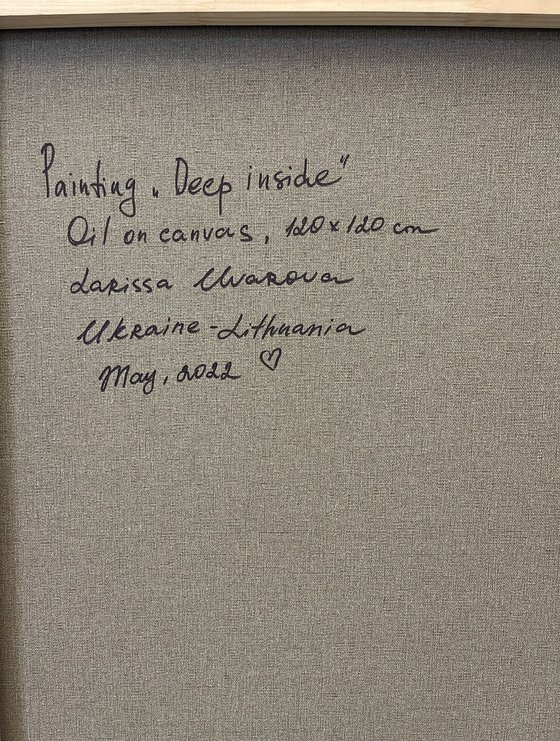 Painting „Deep inside"
Oil on canvas, 120 x 120 cm
Larissa Uvarova
Ukraine - Lithuania
May, 2022 ♡